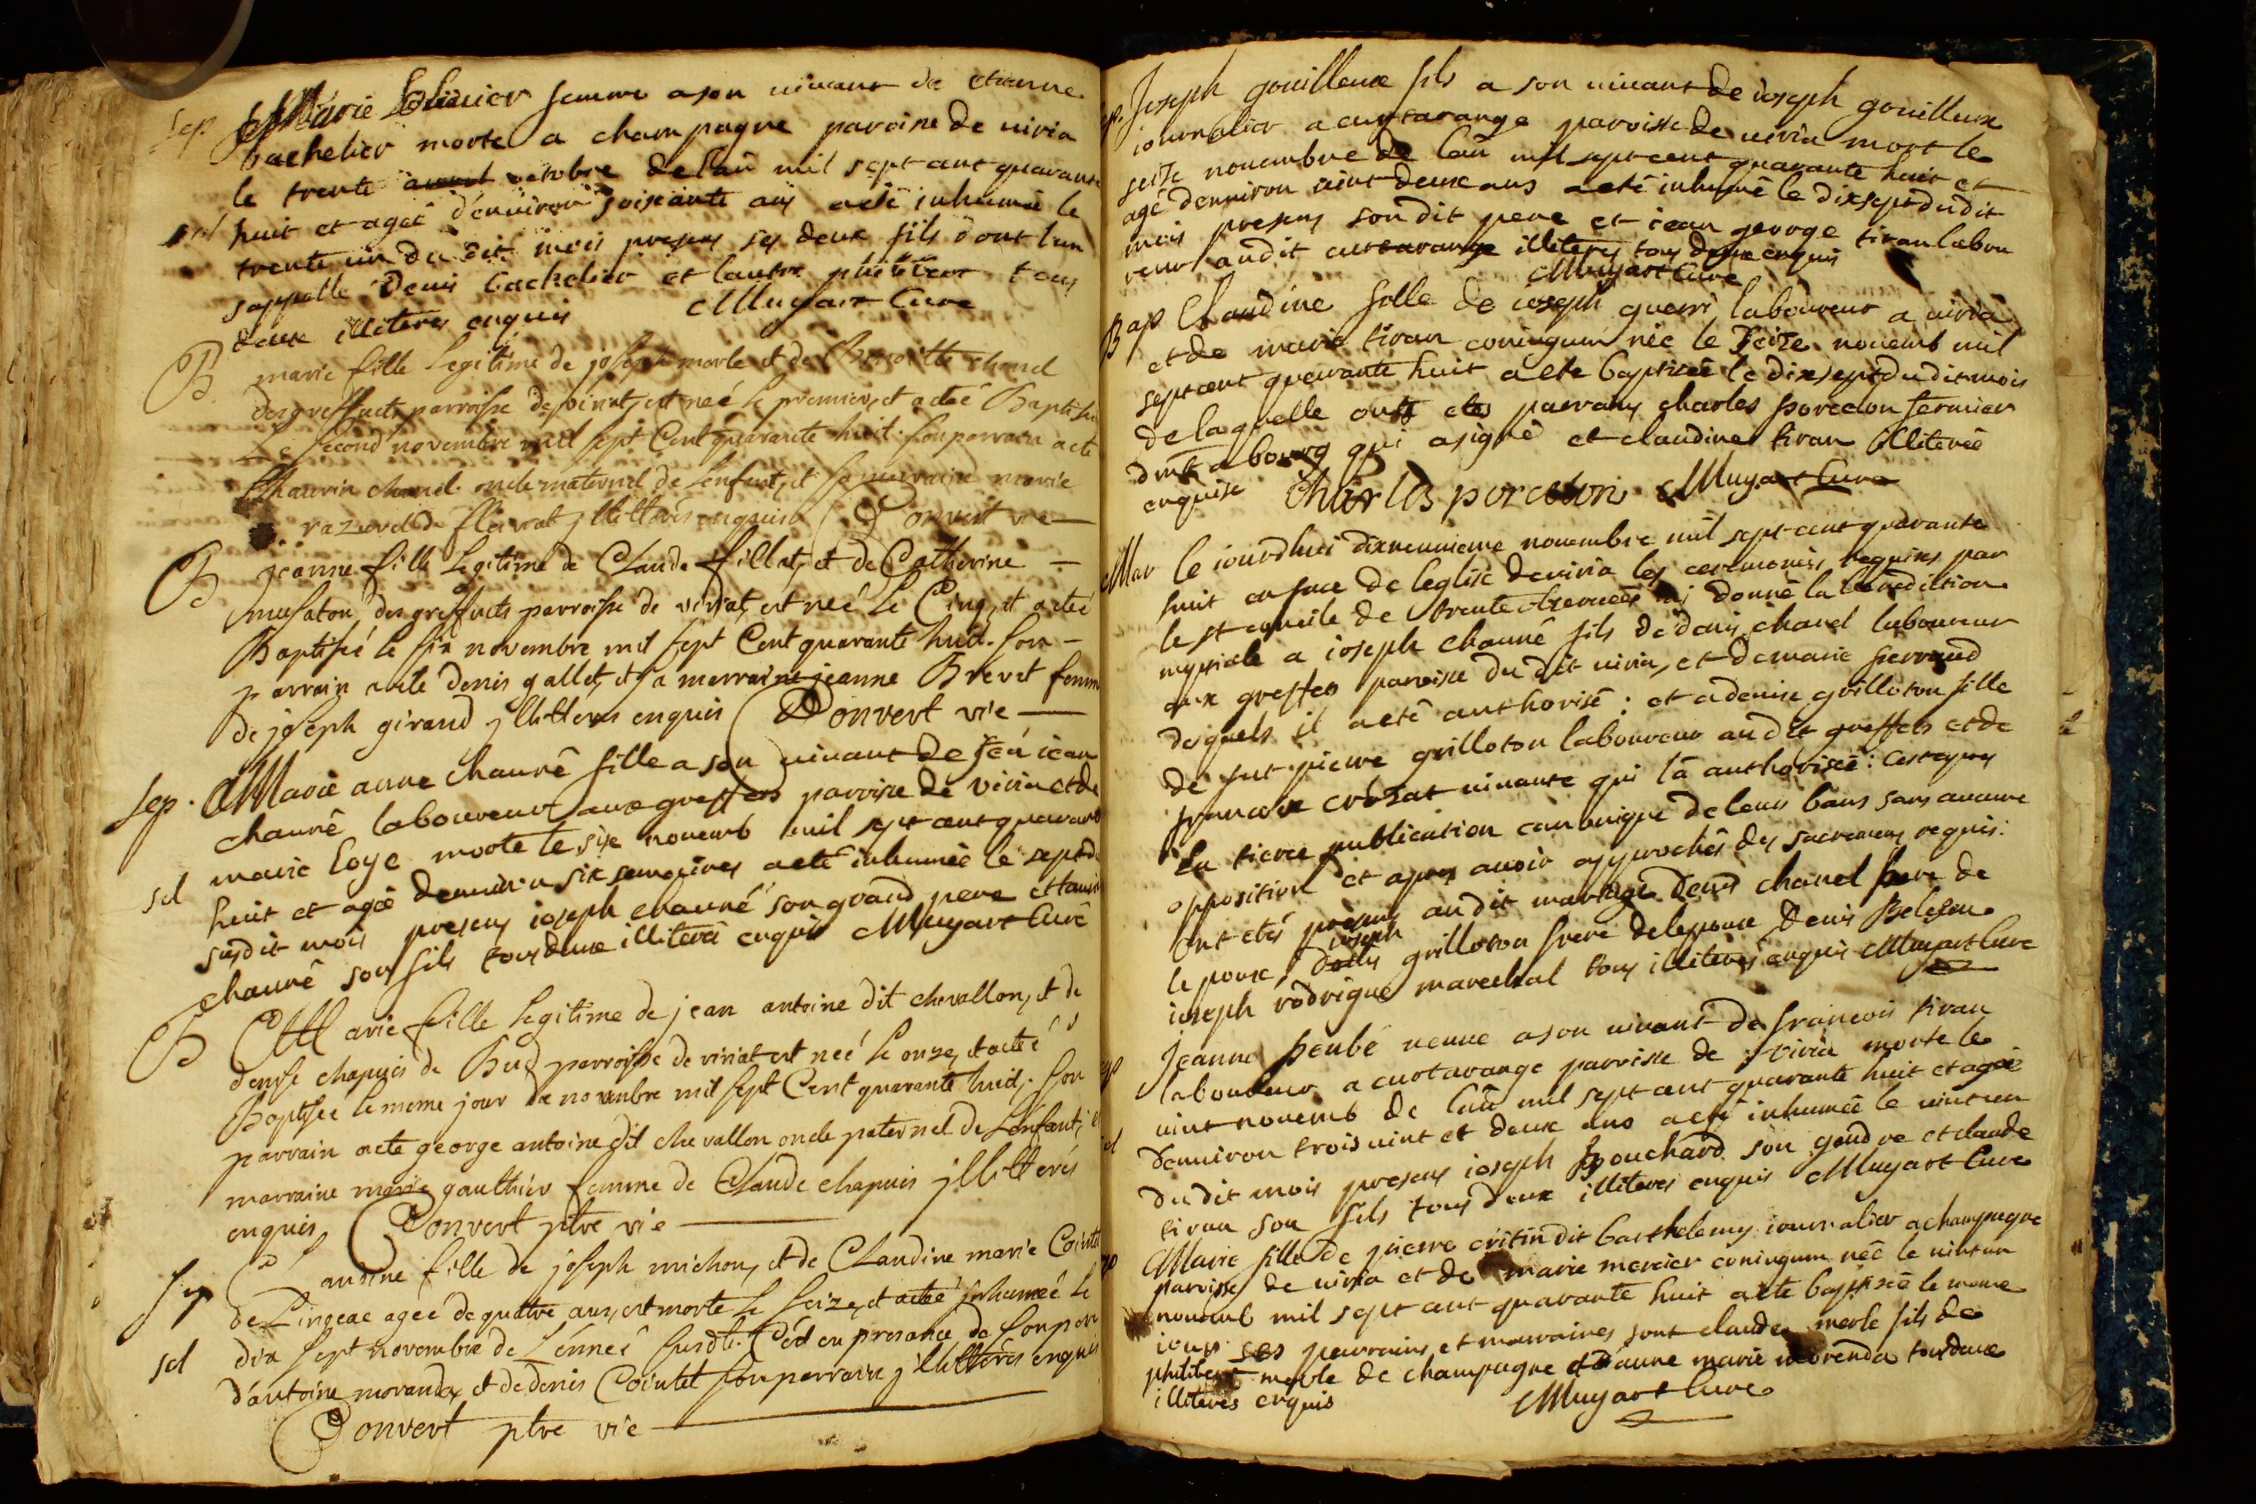 sep Marie femme a son vivant de etienne
bachelier morte a champagne paroisse de viria
le trente octobre de lan mil sept cent quarante
huit et agee d'environ soixante ans a eté inhumée le
sol trente un du dit mois presens ses deux fils dont lun
sappelle Denis bachelier et lautre philibert tous
deux illiteres enquis Muyart Cure
B marie fille Legitime de joseph morle et de chanel
des greffets parroisse de viriat, est neé le premier, et a eteé Baptisée
Le second novembre mil sept Cent quarante huit. son parrain a eté
chanel oncle maternel de Lenfant, et sa marraine marie
razurel de fleuriat jllitterés enquis Convert vic
B jeanne fille Legitime de Claude fillat, et de Catherine
musaton des greffets parroisse de viriat, est neé Le Cinq, et a eteé
Baptiseé le six novembre mil sept Cent quarante huit. son
parrain a ete denis gallet, et sa marraine jeanne Brevet femme
de joseph giraud jllitteres enquis Convert vic
sep. Marie anne channé fille a son vivant de feu jean
channé laboureur aux greffets paroisse de viria et de
marie loye morte le six novemb mil sept cent quarante
sol huit et agée denviron six semaines a eté inhumée le sept du
susdit mois presens joseph channé son grand pere et
channé son fils tous deux illiterés enquis Muyart Curé
B Marie fille Legitime de jean antoine dit chevallon, et de
denyse chapuis de parroisse de viriat est neé le onze, et a eteé
Baptisée le meme jour de novembre mil sept Cent quarante huit. son
parrain a ete george antoine dit chevallon oncle paternel de Lenfant, et
marraine marie gauthier femme de Claude chapuis jllitterés
enquis, Convert ptre vic
Sep Claudine fille de joseph michon, et de Claudine marie Cointet
de Lingeac ageé de quatre ans, est morte le seize, et a eteé Inhumeé Le
sol dix sept novembre de Lénneé susdte. Cest en presance de son parr
d'antoine moranday, et de denis Cointet son parrain jllitterés enquis
Convert ptre vic
sep. Joseph gouilleux fils a son vivant de joseph gouilleux
journalier a curtarange paroisse de viria mort le
seize novembre de lan mil sept cent quarante huit et
agé denviron vint deux ans a eté inhumé le dixsept du dit
mois presens son dit pere et jean george tiran labou
reur au dit curtarange illiterés tous deux enquis
Muyart Cure
Bap Claudine fille de joseph laboureur a viria
et de marie tiran coniugum née le seize novemb mil
sept cent quarante huit a ete baptisée le dixsept du dit mois
de laquelle ont etés parrains charles porcelon fermier
a bourg qui a signé et claudine tiran illiterée
enquise Charles porcelon Muyart Cure
Mar le jourdhui dixneuvieme novembre mil sept cent quarante
huit en face de leglise de viria les ceremonies requises par
le st concile de trente observées donné la benediction
nuptiale a joseph channé fils de denis chanel laboureur
aux greffets paroisse du dit viria, et de marie ferraud
desquels il a eté authorisé : et a denise grilloton fille
de fut pierre grilloton laboureur au dit greffets et de
francoise crozat vivante qui la authorisée : cest apres
la tierce publication canonique de leurs bans sans aucune
opposition et apres avoir approchés des sacremens requis.
Ont etés presens au dit mariage denis chanel pere de
lepoux, joseph grilloton frere de lepouse Denis
joseph rodrigue marechal tous illiterés enquis Muyart Cure
sep Jeanne veuve a son vivant de francois tiran
laboureur a curtarange paroisse de viria morte le
vint novemb de lan mil sept cent quarante huit et agée
sol denviron trois vint et deux ans a eté inhumée le vint un
du dit mois presens joseph bouchard son gendre et claude
tiran son fils tous deux illiteres enquis Muyart Cure
Bap Marie fille de pierre dit barthelemy journalier a champagne
paroisse de viria et de marie mercier coniugum née le vint un
novemb mil sept cent quarante huit a ete baptisée le meme
jour ses parrains et marraines sont claude merle fils de
philibert merle de champagne et anne marie morenda tous deux
illiteres enquis Muyart Cure